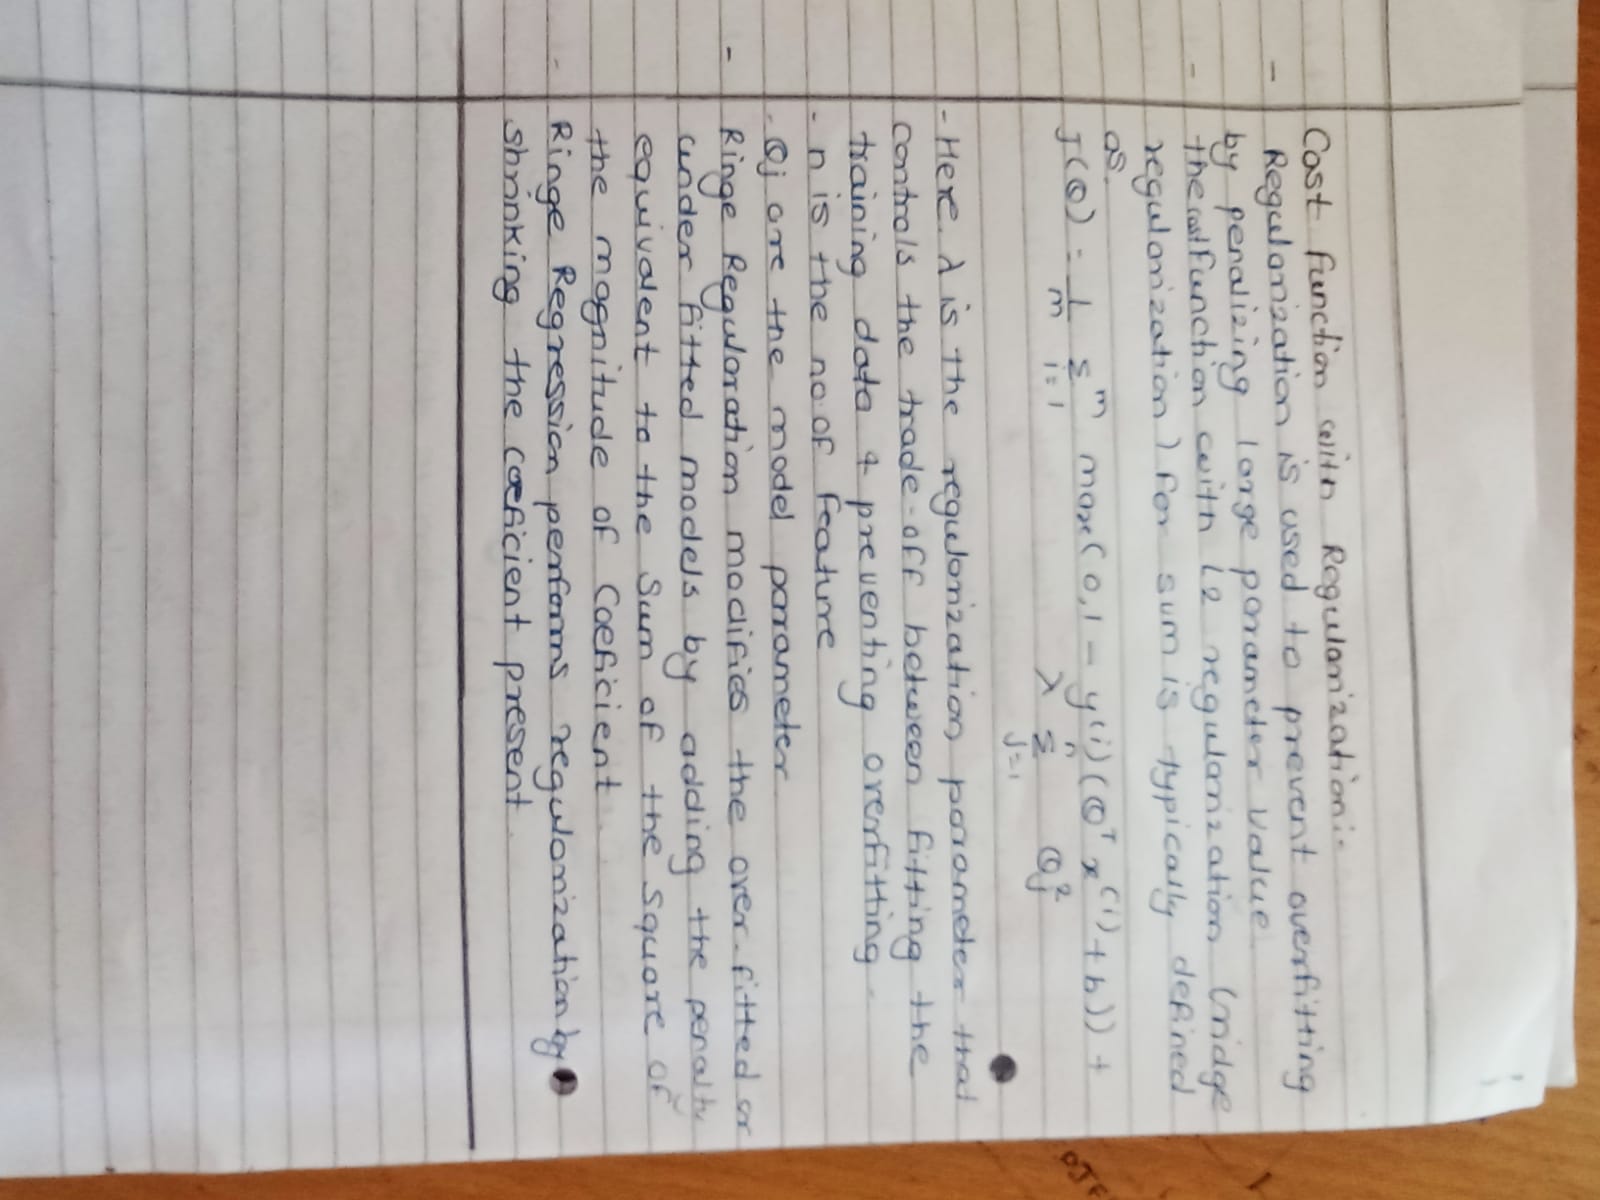 Cost function with Regularization:-
- Regularization is used to prevent overfitting
by penalizing large parameter value.
- the cost function with L2 regularization (ridge
regularization) for sum is typically defined
as.
J(θ) = 1/m Σ_{i=1}^{m} max(0,1 - y(i)(θ^T x^(i) + b)) +
λ Σ_{j=1}^{n} θ_j^2
- Here λ is the regularization parameter that
controls the trade-off between fitting the
training data & preventing overfitting.
- n is the no. of feature
- θj are the model parameter
- Ringe Reguloration modifies the over-fitted or
under fitted models by adding the penalty
equivalent to the Sum of the square of
the magnitude of Coeficient.
- Ringe Regression performs regularization by
shrinking the coeficient present.